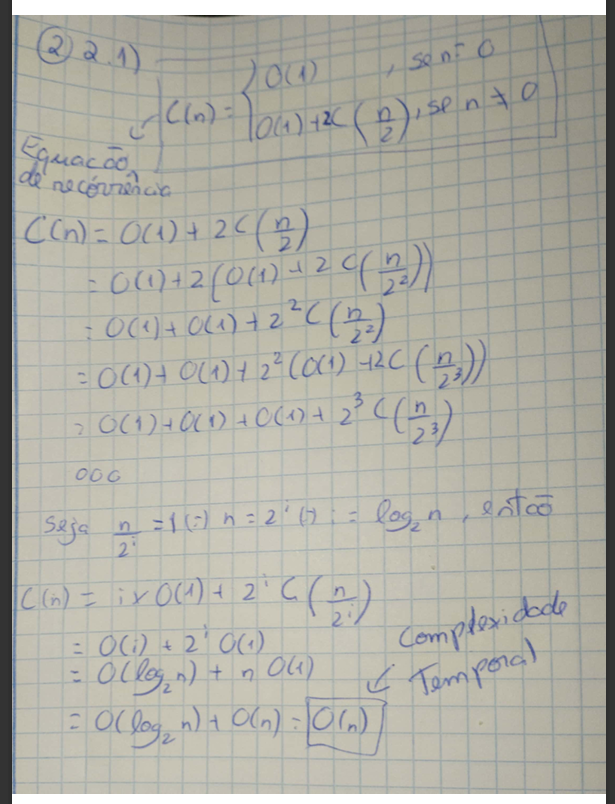 ② 2.1)
C(n) = { O(1) , se n = 0
O(1) + 2C(n/2), se n ≠ 0
Equação
de recorrência
C(n) = O(1) + 2C(n/2)
= O(1) + 2(O(1) + 2C(n/2²))
= O(1) + O(1) + 2²C(n/2²)
= O(1) + O(1) + 2²(O(1) + 2C(n/2³))
= O(1) + O(1) + O(1) + 2³C(n/2³)
ooo
Seja n/2ⁱ = 1 (=) n = 2ⁱ (=) i = log₂ n, então
C(n) = i x O(1) + 2ⁱ C(n/2ⁱ)
= O(i) + 2ⁱ O(1)
= O(log₂ n) + n O(1)
= O(log₂ n) + O(n) = O(n)
Complexidade
Temporal